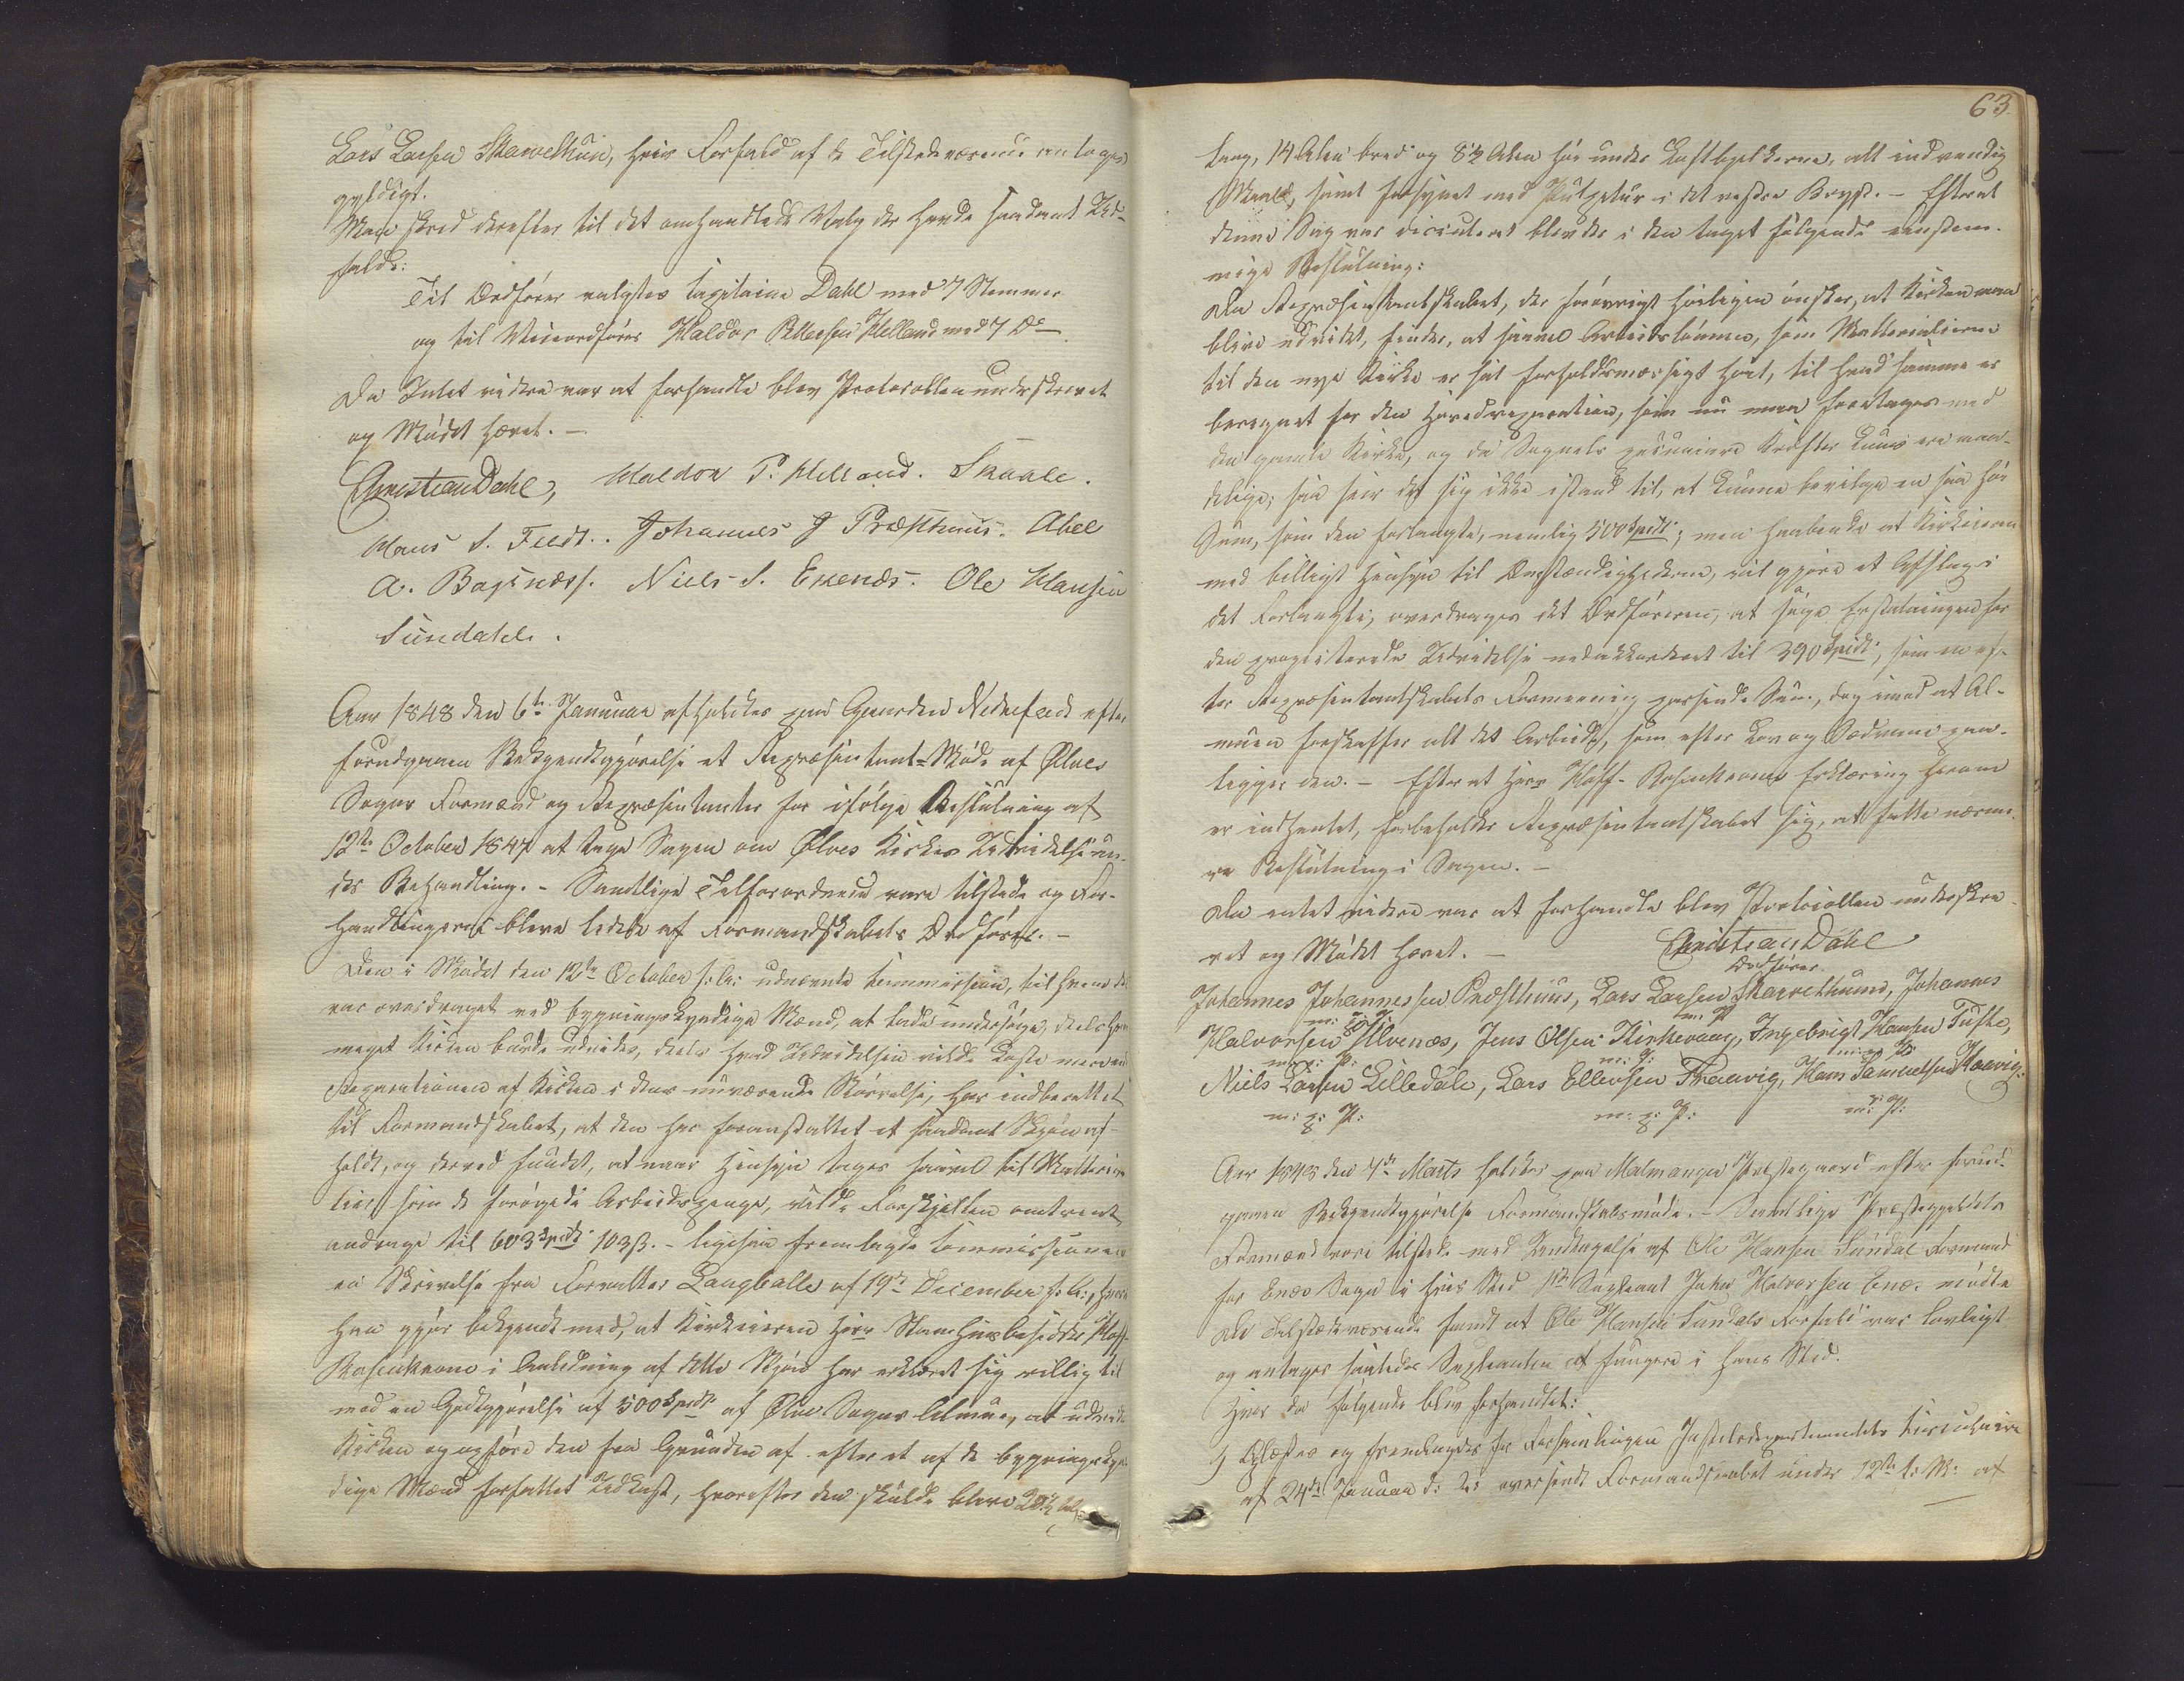 Lars Larsen Skarvethun, hvis Forfald af de Tilstedeværende antoges
gyldigt.
Man skred derefter til det omhandlede Valg der havde saadant Ud-
fald:
Til Ordfører valgtes Capitaine Dahl med 7 Stemmer
og til Viceordfører Haldor Pedersen Helland med 7 Do
Da Intet videre var at forhandle blev Protocollen underskrevet
og Mødet hævet. -
Christian Dahl, Haldor P. Helland. Skaale.
Hans S. Feedt. Johannes J Præsthuus. Abel
A. Bagsnæss. Niels S. Exenæs. Ole Hansen
Sundahl.
Aar 1848 den 6te Januar afholdtes paa Gaarden Nedrefeed efter
forudgaaen Bekjendtgjørelse et Repræsentant-Møde af Ølves
Sogns Formænd og Repræsentanter for ifølge Beslutning af
12te October 1847 at tage Sagen om Ølves Kirkes Udvidelse un-
der Behandling. - Samtlige Tilforordnede vare tilstede og For-
handlingerne bleve ledede af Formandskabets Ordfører. -
Den i Mødet den 12te October f: A: udnævnte Commission, til hvem det
var overdraget ved bygningskyndige Mænd, at lade undersøge, deels hvor
meget Kirken burde udvides, deels hvad Udvidelsen vilde koste mere end
Reparationen af Kirken i dens nuværende Størrelse, har indberettet
til Formandskabet, at den har foranstaltet et saadant Skjøn af-
holdt, og derved fundet, at naar Hensyn tages saavel til Materia-
lier som de forøgede Arbeidspenge, vilde Forskjellen omtrent
andrage til 603 Spdlr 103 ß. - ligesaa fremlagde Commissionen
en Skrivelse fra Forvalter Langballe af 19de December f: A:, hvori
han gjør bekjendt med, at Kirkeieren Herr Stamhuusbesidder Hoff-
Rosenkrone i Anledning af dette Skjøn har erklæret sig villig til
mod en Godtgjørelse af 500 Spdlr af Ølve Sogns Almue, at udvide
Kirken og opføre den fra Grunden af efter et af de bygningskyn-
dige Mænd forfattet Udkast, hvorefter den skulde blive 20½ Al:
63.
lang, 14 Alen bred og 8½ Alen høi under Loftbjelkerne, alt indvendig
Maal, samt forsynet med Pulpetur i det vestre Bryst. - Efterat
denne Sag var discuteret blev der i den taget følgende eenstem-
mige Beslutning:
Da Repræsentantskabet, der forøvrigt høiligen ønsker, at Kirken maa
blive udvidet, finder, at saavel Arbeidslønnen, som Materialierne
til den nye Kirke er sat forholdsmæssigt høit, til hvad samme er
beregnet for den Hovedreparation, som nu maa foretages med
den gamle Kirke, og da Sognets pecuniaire Kræfter kuns ere maa-
delige; saa seer det sig ikke istand til, at kunne bevilge en saa høi
Sum, som den forlangte, nemlig 500 Spdlr; men haabende at Kirkeieren
med billigt Hensyn til Omstændighederne, vil gjøre et Afslag i
det Forlangte, overdrages det Ordføreren, at søge Erstatningen for
den projecterede Udvidelse nedakkorderet til 390 Spdlr, som en ef-
ter Repræsentantskabets Formeening passende Sum, dog imod at Al-
muen forskaffer alt det Arbeide, som efter Lov og Sædvane paa-
ligger den. - Efter at Herr Hoff-Rosenkrones Erklæring herom
er indhentet, forbeholder Repræsentantskabet sig, at fatte nærme-
re Beslutning i Sagen. -
Da intet videre var at forhandle blev Protocollen underskre-
vet og Mødet hævet. - Christian Dahl
Ordfører
Johannes Johannessen Præsthuus, Lars Larsen Skarvethuun, Johannes
m: P: m: P
Halvorsen Ølvenæs, Jens Olsen Kirkevaag, Ingebrigt Hansen Tufte,
m: P: m: P: m: P:
Niels Larsen Lilledale, Lars Ellevsen Traavig, Hans Samuelsen Haavig.
m: p: P: m: p: P: m: P:
Aar 1848 den 7de Marts holdtes paa Malmanger Præstegaard efter forud-
gaaen Bekjendtgjørelse Formandskabsmøde. - Samtlige Præstegjeldets
Formænd vare tilstede med Undtagelse af Ole Hansen Sundal Formand
for Enæs Sogn i hvis Sted 1ste Supleant John Halvorsen Enæs mødte
De Tilstedeværende fandt at Ole Hansen Sundals Forfald var lovligt
og antages saaledes Supleanten at fungere i hans Sted.
Hvor da følgende blev forhandlet:
1 Oplæstes og fremlagdes for Forsamlingen Justitsdepartementets Circulaire
af 24de Januar d: A: oversendt Formandskabet under 12te f: M: af